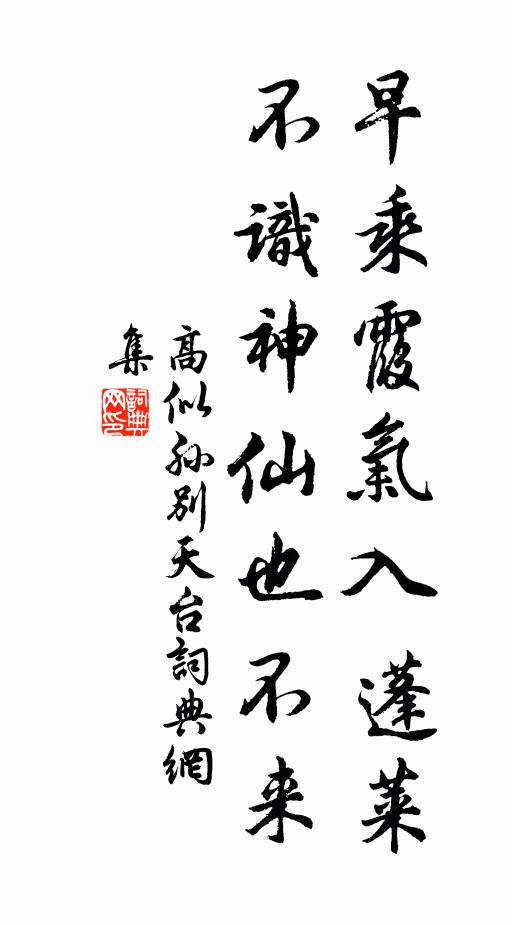 早乘霞氣入蓬萊
不識神仙也不来
高似孙別天台詞典網
集
詞典网印